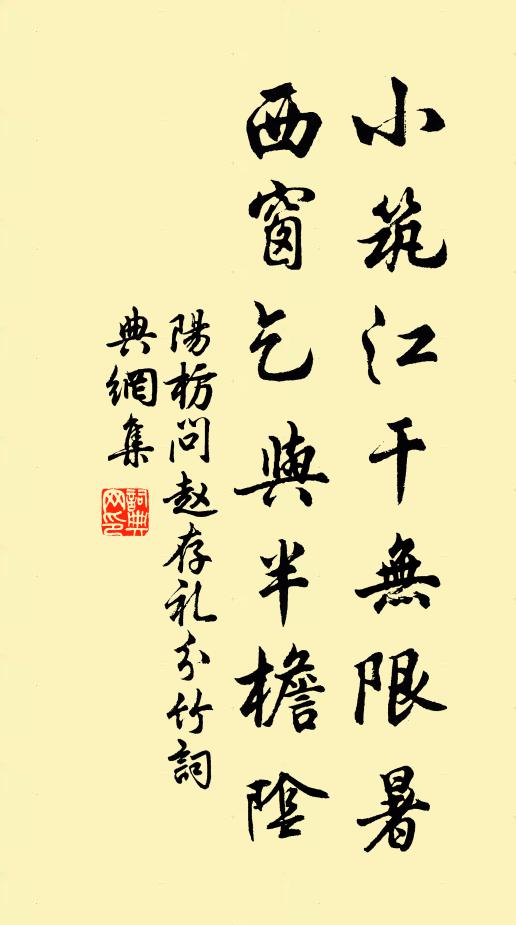 小筑江干無限暑
西窗乞與半檐陰
陽枋問赵存礼分竹詞
典網集
詞典网印